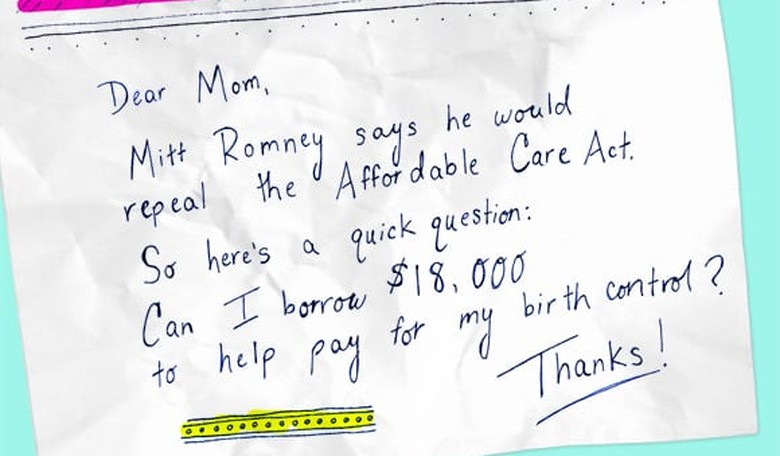 Dear Mom,
Mitt Romney says he would
repeal the Affordable Care Act.
So here's a quick question:
Can I borrow $18,000
to help pay for my birth control?
Thanks!